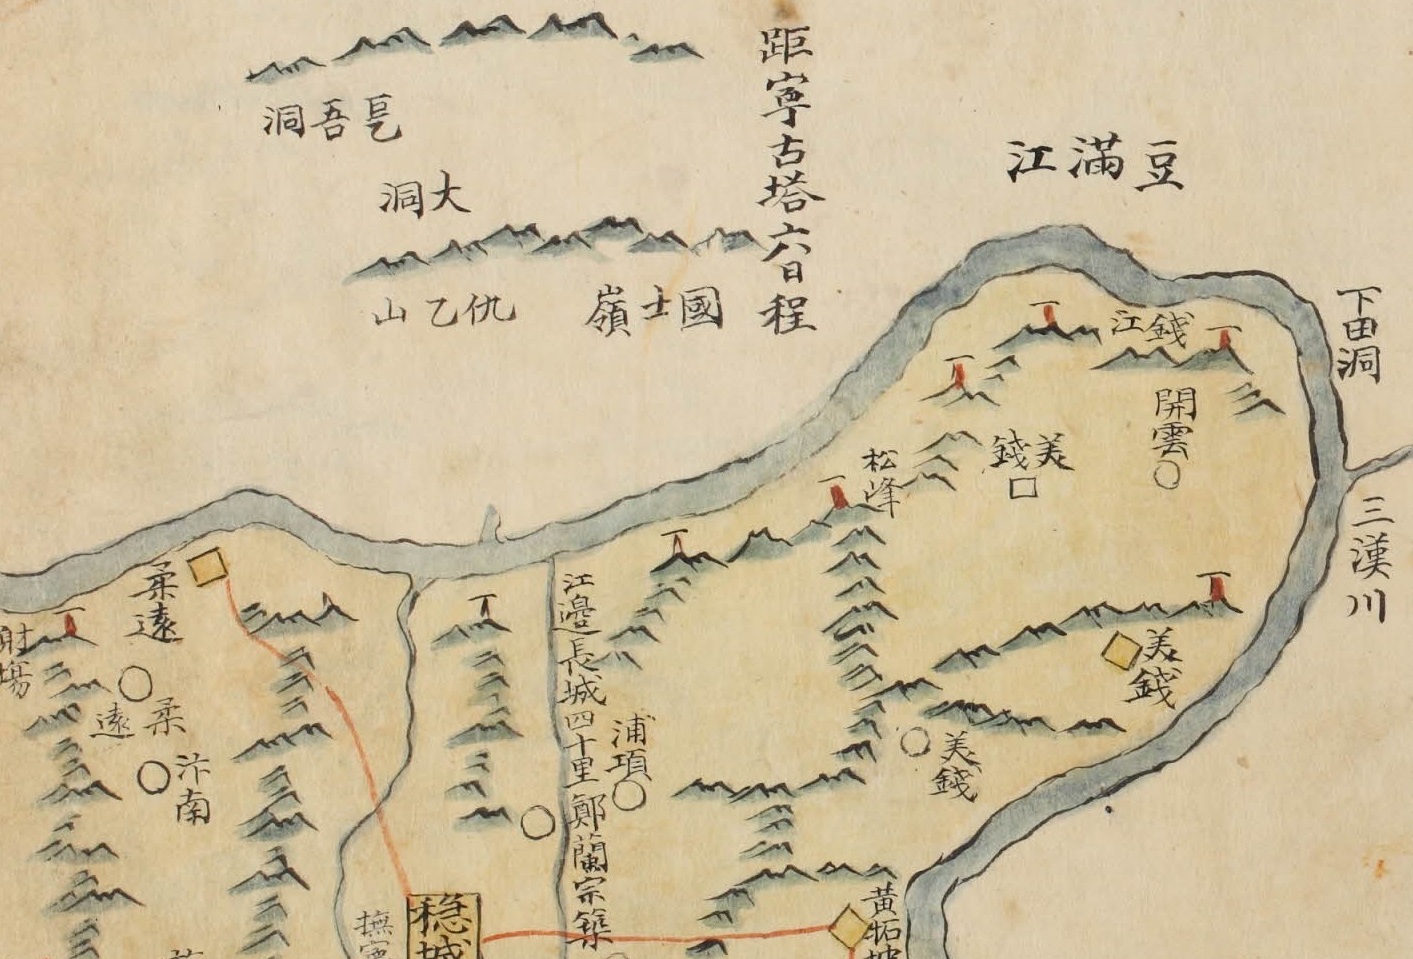 距寧古塔六日程
豆滿江
洞吾㐏
大洞
國士嶺
仇乙山
下田洞
三漢川
錢江
開雲
美錢
松峰
美錢
美錢
江邊長城四十里鄭蘭宗築
浦項
柔遠
射場
柔遠
汴南
穩城
撫寧
黃柘坡